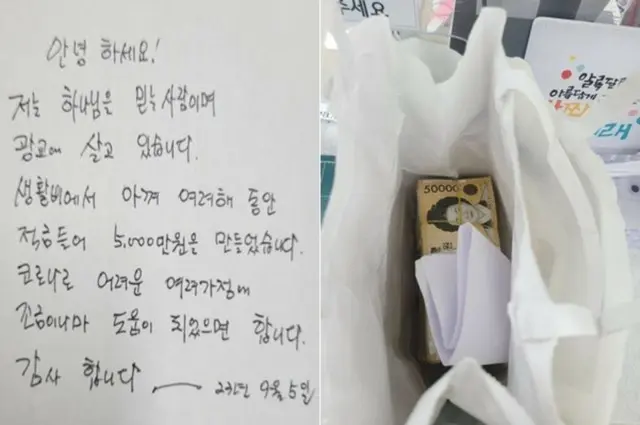 안녕 하세요!
저는 하나님을 믿는 사람이며
광교에 살고 있습니다.
생활비에서 아껴 여러해 동안
적금들어 5,000만원을 만들었습니다.
코로나로 어려운 여러가정에
조금이나마 도움이 되었으면 합니다.
감사 합니다
23년 9월 5일
주세요
50000
아름답게